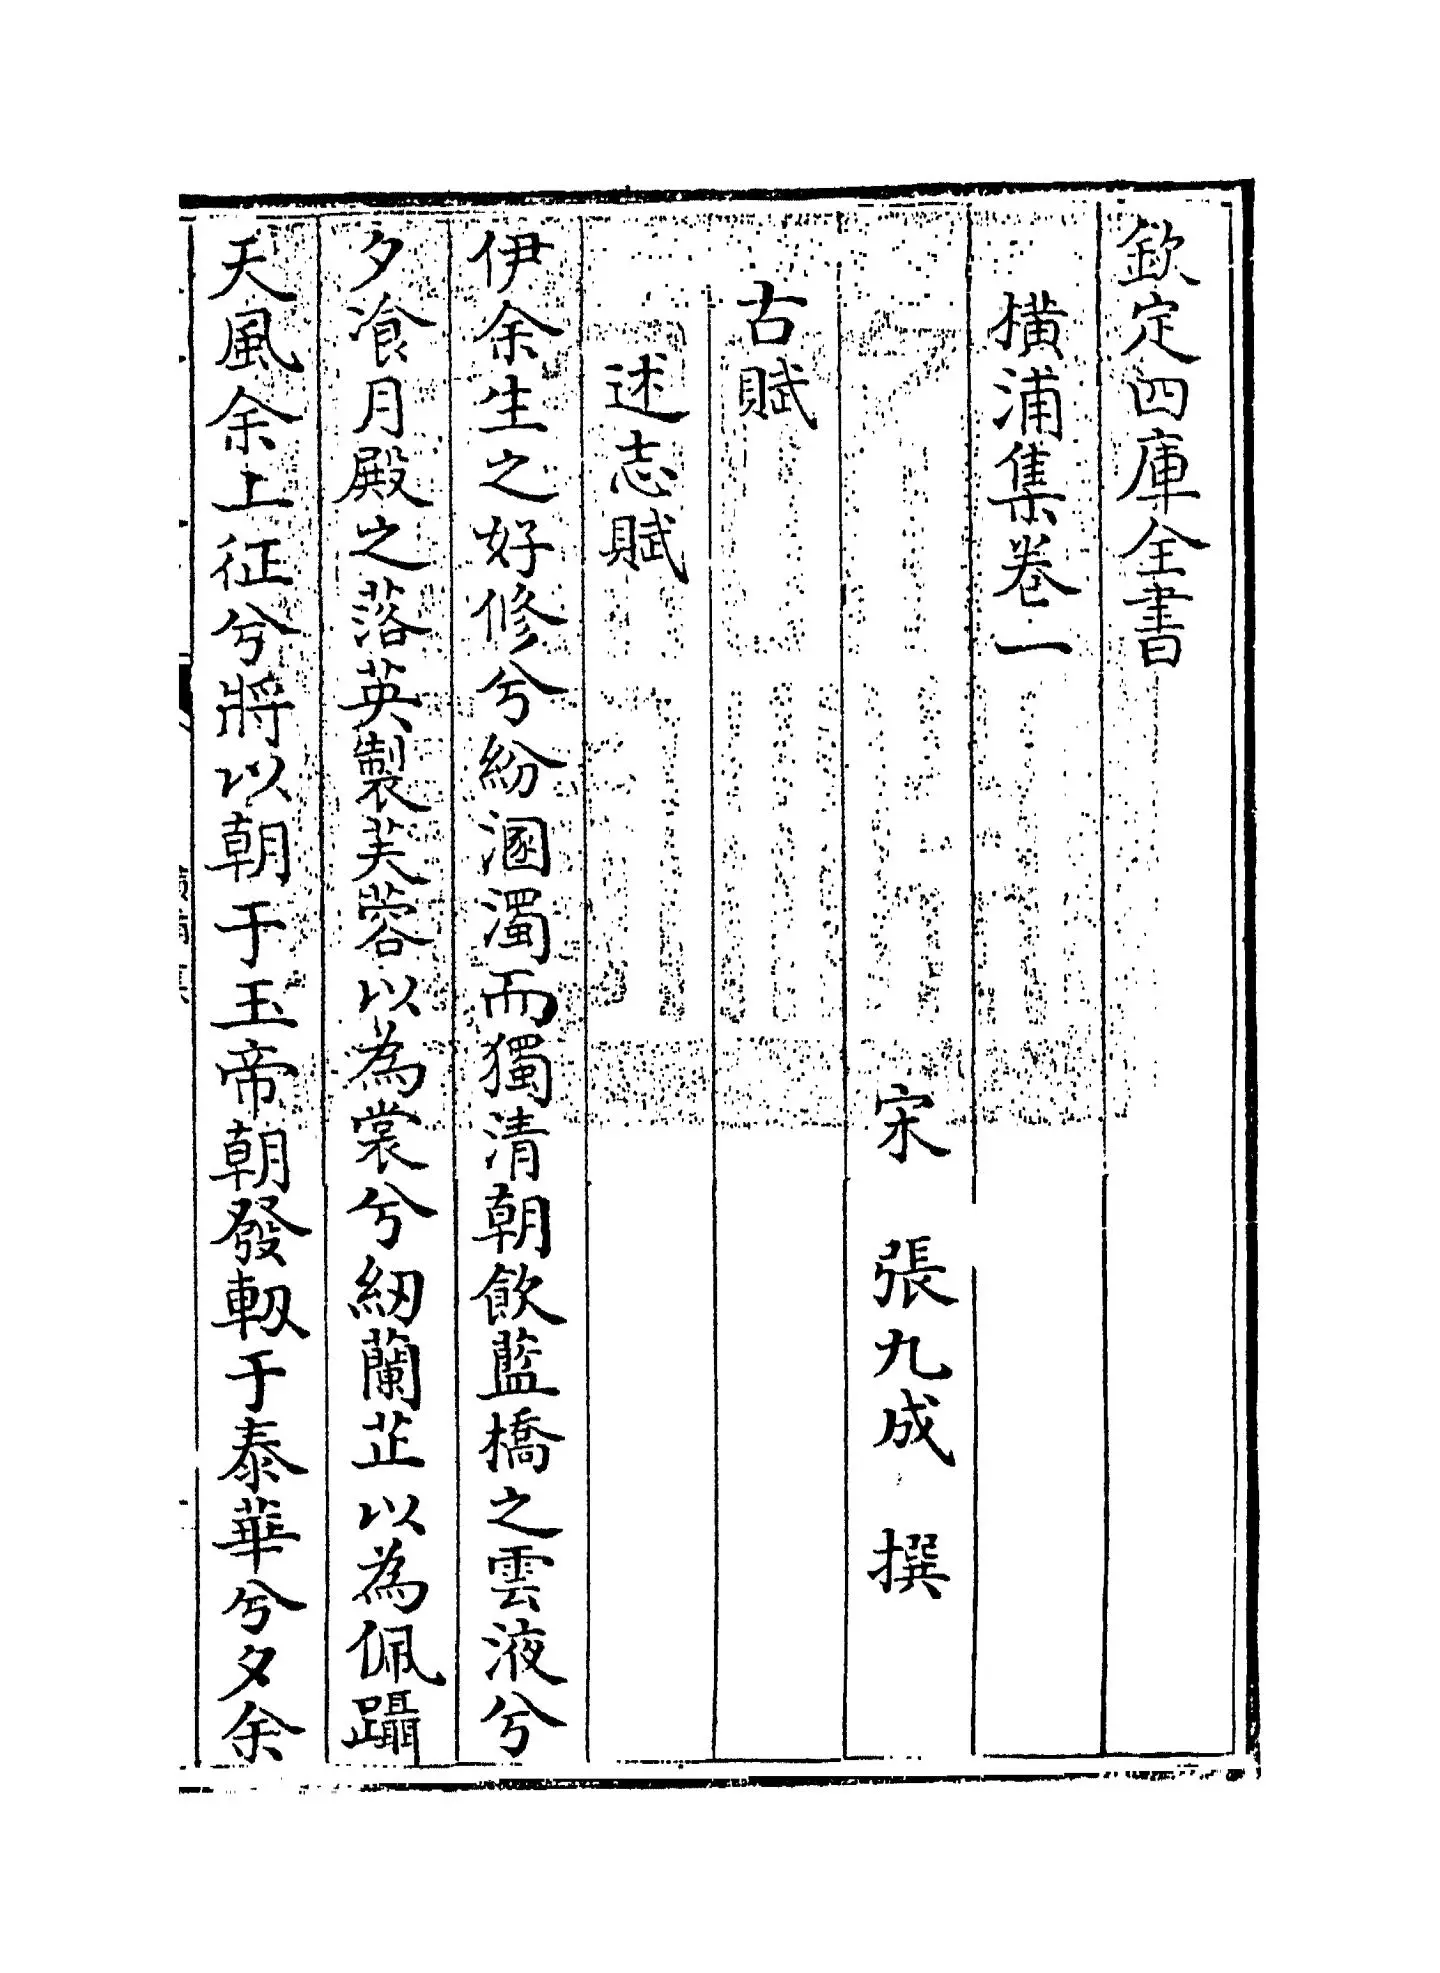 欽定四庫全書
橫浦集卷一
宋 張九成 撰
古賦
述志賦
伊余生之好修兮紛溷濁而獨清朝飲藍橋之雲液兮
夕飡月殿之落英製芙蓉以為裳兮紉蘭芷以為佩躡
天風余上征兮將以朝于玉帝朝發軔于泰華兮夕余